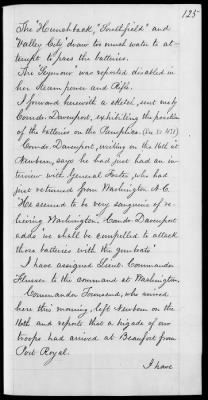 125
The "Hunchback," "Southfield" and
Valley City draw too much water to at-
tempt to pass the batteries.
The "Seymour" was reported disabled in
her steam power and Rifle.
I forward herewith a sketch, sent me by
Comdr. Davenport, exhibiting the position
of the batteries on the Pamplico.
Comdr. Davenport, writing on the 16th at
Newbern, says he had just had an in-
terview with General Foster, who had
just returned from Washington N.C.
"He seemed to be very sanguine of re-
lieving Washington." Comdr. Davenport
adds "we shall be compelled to attack
those batteries with the gunboats."
I have assigned Lieut. Commander
Flusser to the command at Washington.
Commander Townsend, who arrived
here this morning, left Newbern on the
16th and reports that a brigade of our
troops had arrived at Beaufort from
Port Royal.
I have